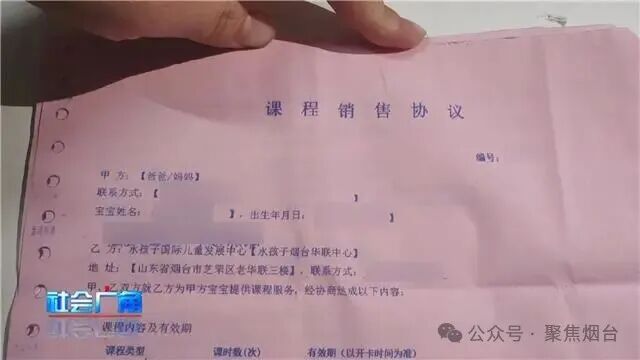 课程销售协议
编号：
甲 方：【爸爸/妈妈】
联系方式：【
宝宝姓名： 】，出生年月日：
乙 方：水孩子国际儿童发展中心【水孩子烟台华联中心】
地 址：【山东省烟台市芝罘区老华联三楼】，联系方式：
甲、乙双方就乙方为甲方宝宝提供课程服务，经协商达成以下内容：
课程内容及有效期
课程类型 课时数(次) 有效期（以开卡时间为准）
社会广角
公众号·聚焦烟台